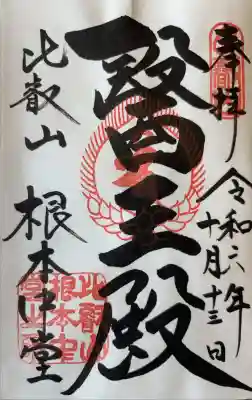 奉拝
令和六年
十月十三日
醫王殿
比叡山
根本中堂
比叡山
根本中
堂之印